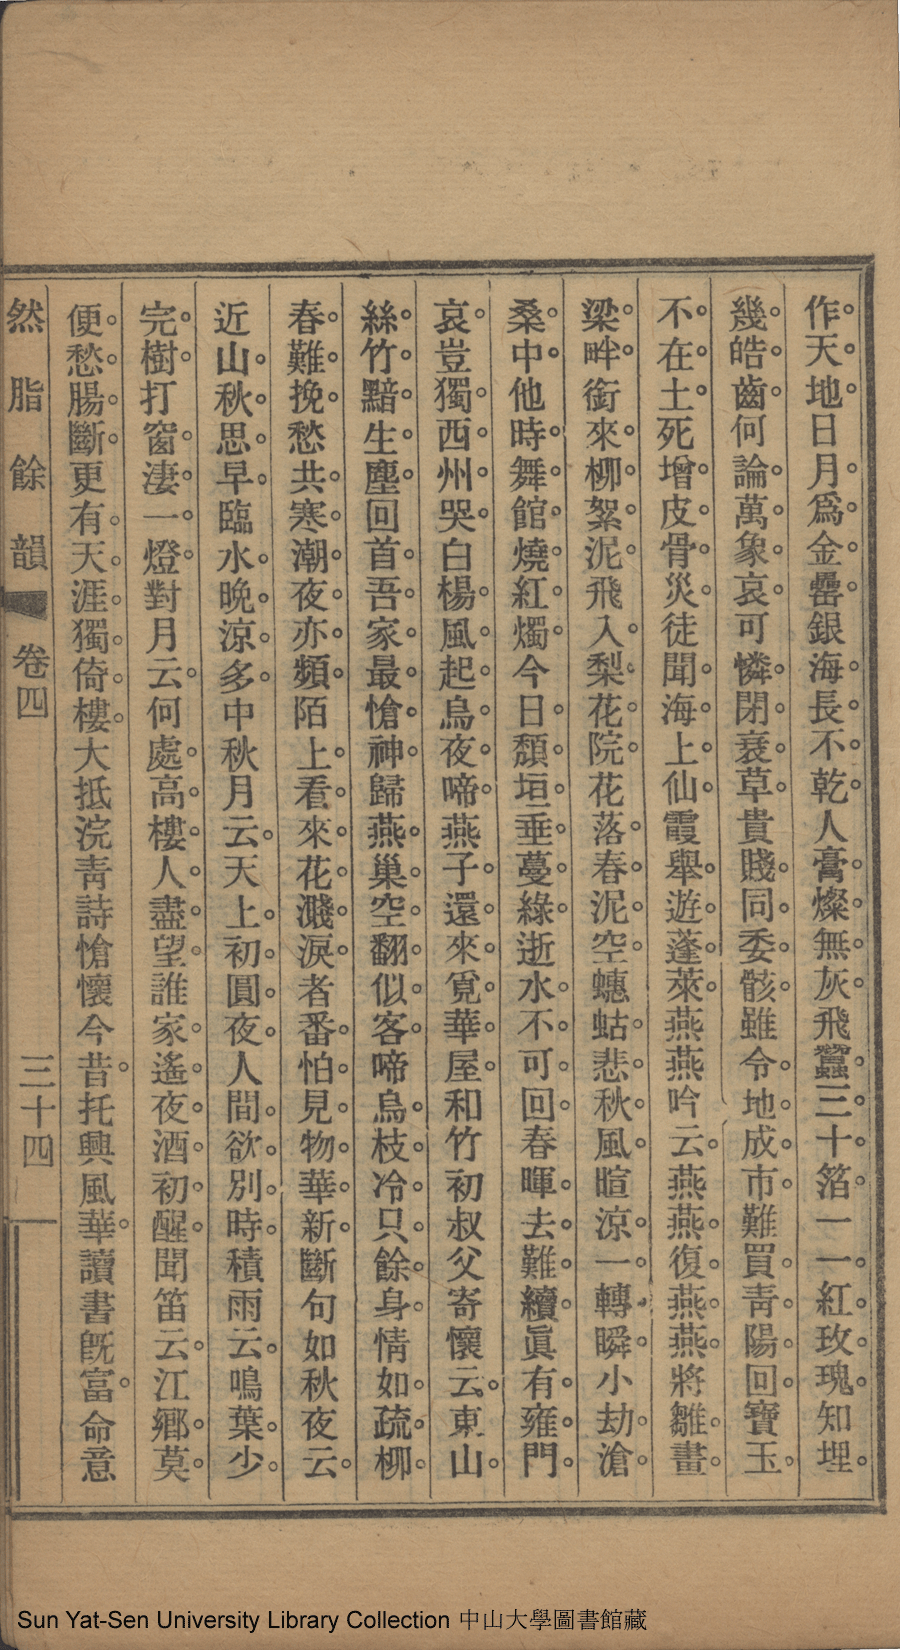 作天地日月爲金罍銀海長不乾人膏燦無灰飛蠶三十箔一一紅玫瑰知埋
幾皓齒何論萬象哀可憐閉衰草貴賤同委骸雖令地成市難買靑陽回寶玉
不在土死增皮骨災徒聞海上仙霞舉遊蓬萊燕燕吟云燕燕復燕燕將雛畫
梁畔銜來柳絮泥飛入梨花院花落春泥空蟪蛄悲秋風暄涼一轉瞬小劫滄
桑中他時舞館燒紅燭今日頹垣垂蔓綠逝水不可回春暉去難續眞有雍門
哀豈獨西州哭白楊風起烏夜啼燕子還來覓華屋和竹初叔父寄懷云東山
絲竹黯生塵回首吾家最愴神歸燕巢空翻似客啼烏枝冷只餘身情如疏柳
春難挽愁共寒潮夜亦頻陌上看來花濺淚者番怕見物華新斷句如秋夜云
近山秋思早臨水晚涼多中秋月云天上初圓夜人間欲別時積雨云鳴葉少
完樹打窗淒一燈對月云何處高樓人盡望誰家遙夜酒初醒聞笛云江鄉莫
便愁腸斷更有天涯獨倚樓大抵浣靑詩愴懷今昔托興風華讀書旣富命意
然脂餘韻 卷四 三十四
Sun Yat-Sen University Library Collection 中山大學圖書館藏